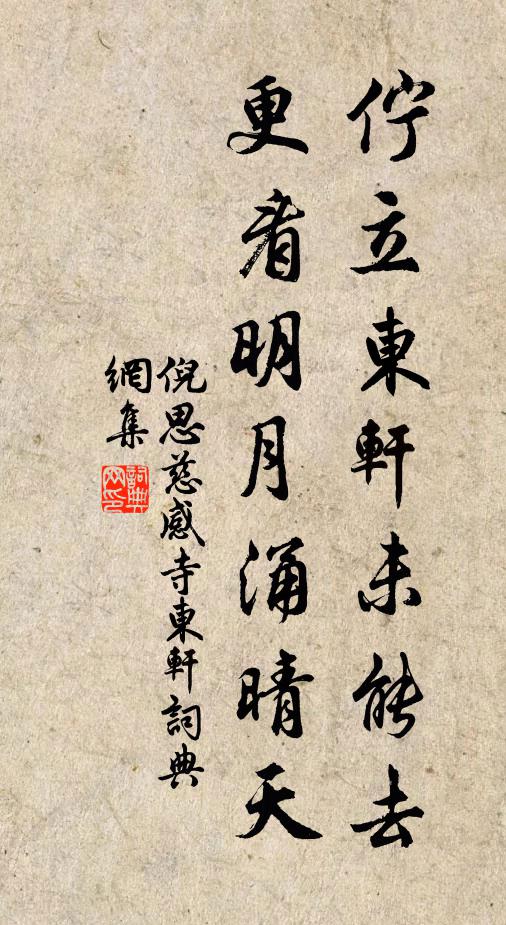 佇立東軒未能去
更看明月涌晴天
倪思慈感寺東軒詞典
網集
詞典網印